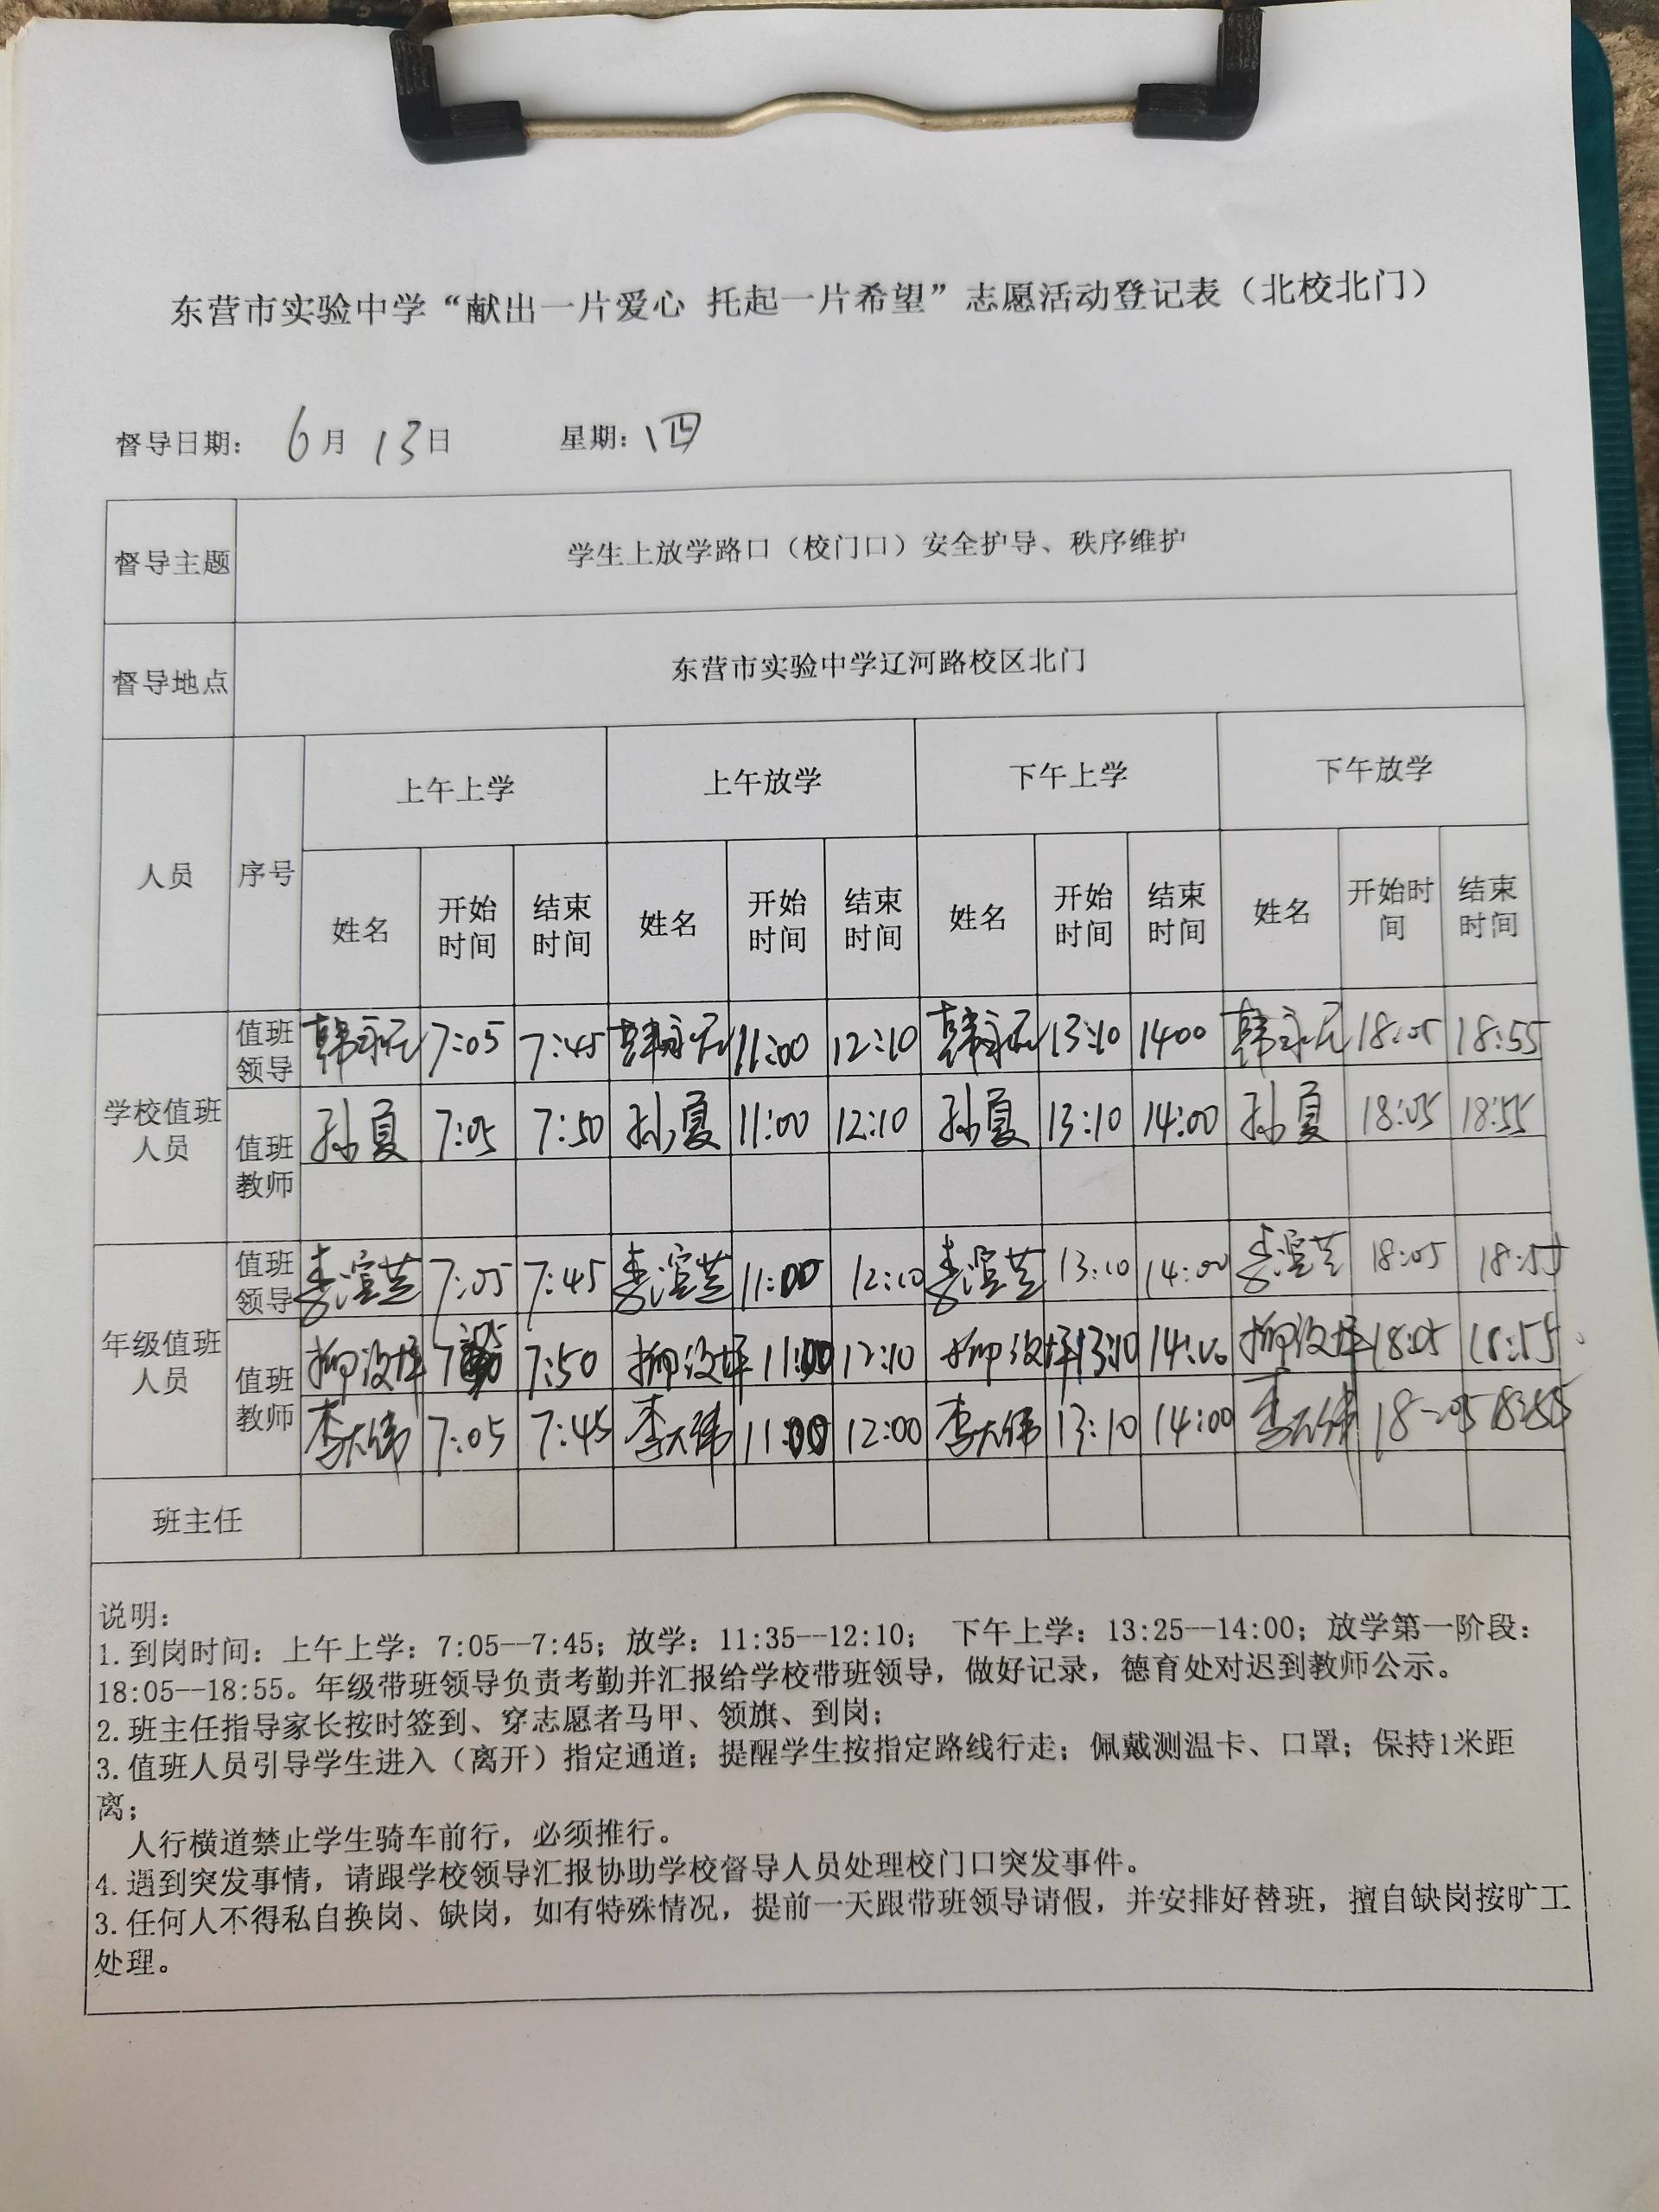 东营市实验中学“献出一片爱心 托起一片希望”志愿活动登记表（北校北门）
督导日期： 6月13日 星期：四
督导主题 学生上放学路口（校门口）安全护导、秩序维护
督导地点 东营市实验中学辽河路校区北门
人员 序号 上午上学 上午放学 下午上学 下午放学
姓名 开始时间 结束时间 姓名 开始时间 结束时间 姓名 开始时间 结束时间 姓名 开始时间 结束时间
学校值班人员 值班领导 7:05 7:45 11:00 12:10 13:10 1400 18:05 18:55
值班教师 孙夏 7:05 7:50 孙夏 11:00 12:10 孙夏 13:10 14:00 孙夏 18:05 18:55
年级值班人员 值班领导 7:05 7:45 11:00 12:10 13:10 14:00 18:05 18:55
值班教师 7:50 11:00 12:10 13:10 14:00 18:05 18:55
李大伟 7:05 7:45 李大伟 11:00 12:00 李大伟 13:10 14:00 李大伟
班主任
说明：
1.到岗时间：上午上学：7:05--7:45；放学：11:35--12:10； 下午上学：13:25--14:00；放学第一阶段：
18:05--18:55。年级带班领导负责考勤并汇报给学校带班领导，做好记录，德育处对迟到教师公示。
2.班主任指导家长按时签到、穿志愿者马甲、领旗、到岗；
3.值班人员引导学生进入（离开）指定通道；提醒学生按指定路线行走；佩戴测温卡、口罩；保持1米距
离；
人行横道禁止学生骑车前行，必须推行。
4.遇到突发事情，请跟学校领导汇报协助学校督导人员处理校门口突发事件。
3.任何人不得私自换岗、缺岗，如有特殊情况，提前一天跟带班领导请假，并安排好替班，擅自缺岗按旷工
处理。